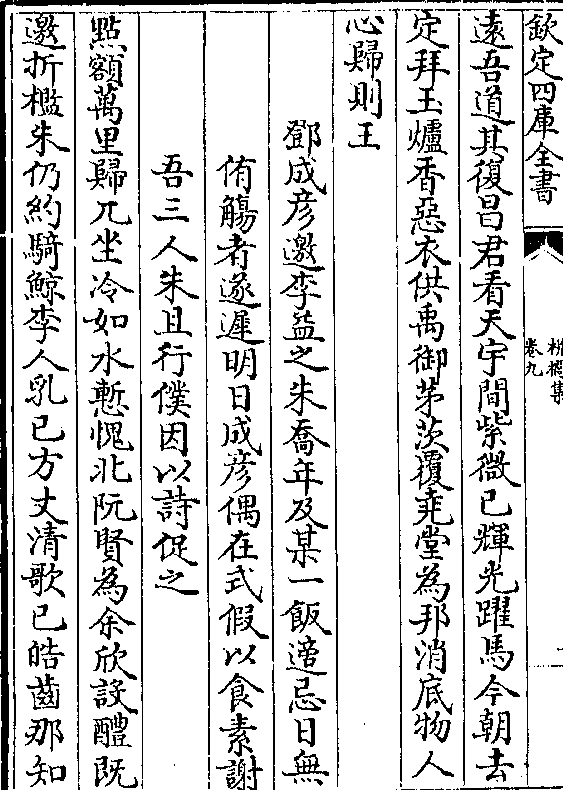 欽定四庫全書
卷九
遠吾道其復昌君看天宇間紫微已輝光躍馬今朝去
定拜玉爐香惡衣供禹御茅茨覆堯堂為邦消底物人
心歸則王
鄧成彦邀李益之朱喬年及某一飯適忌日無
侑觴者遂遲明日成彦偶在式假以食素謝
吾三人朱且行僕因以詩促之
點額萬里歸兀坐冷如水慙愧北阮賢為余欣設醴既
邀折檻朱仍約騎鯨李人乳已方丈清歌已皓齒那知